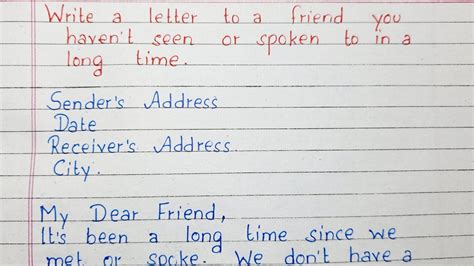 Write a letter to a friend you
haven't seen or spoken to in a
long time.
Sender's Address
Date
Receiver's Address
City.
My Dear Friend,
It's been a long time since we
met or spoke. We don't have a